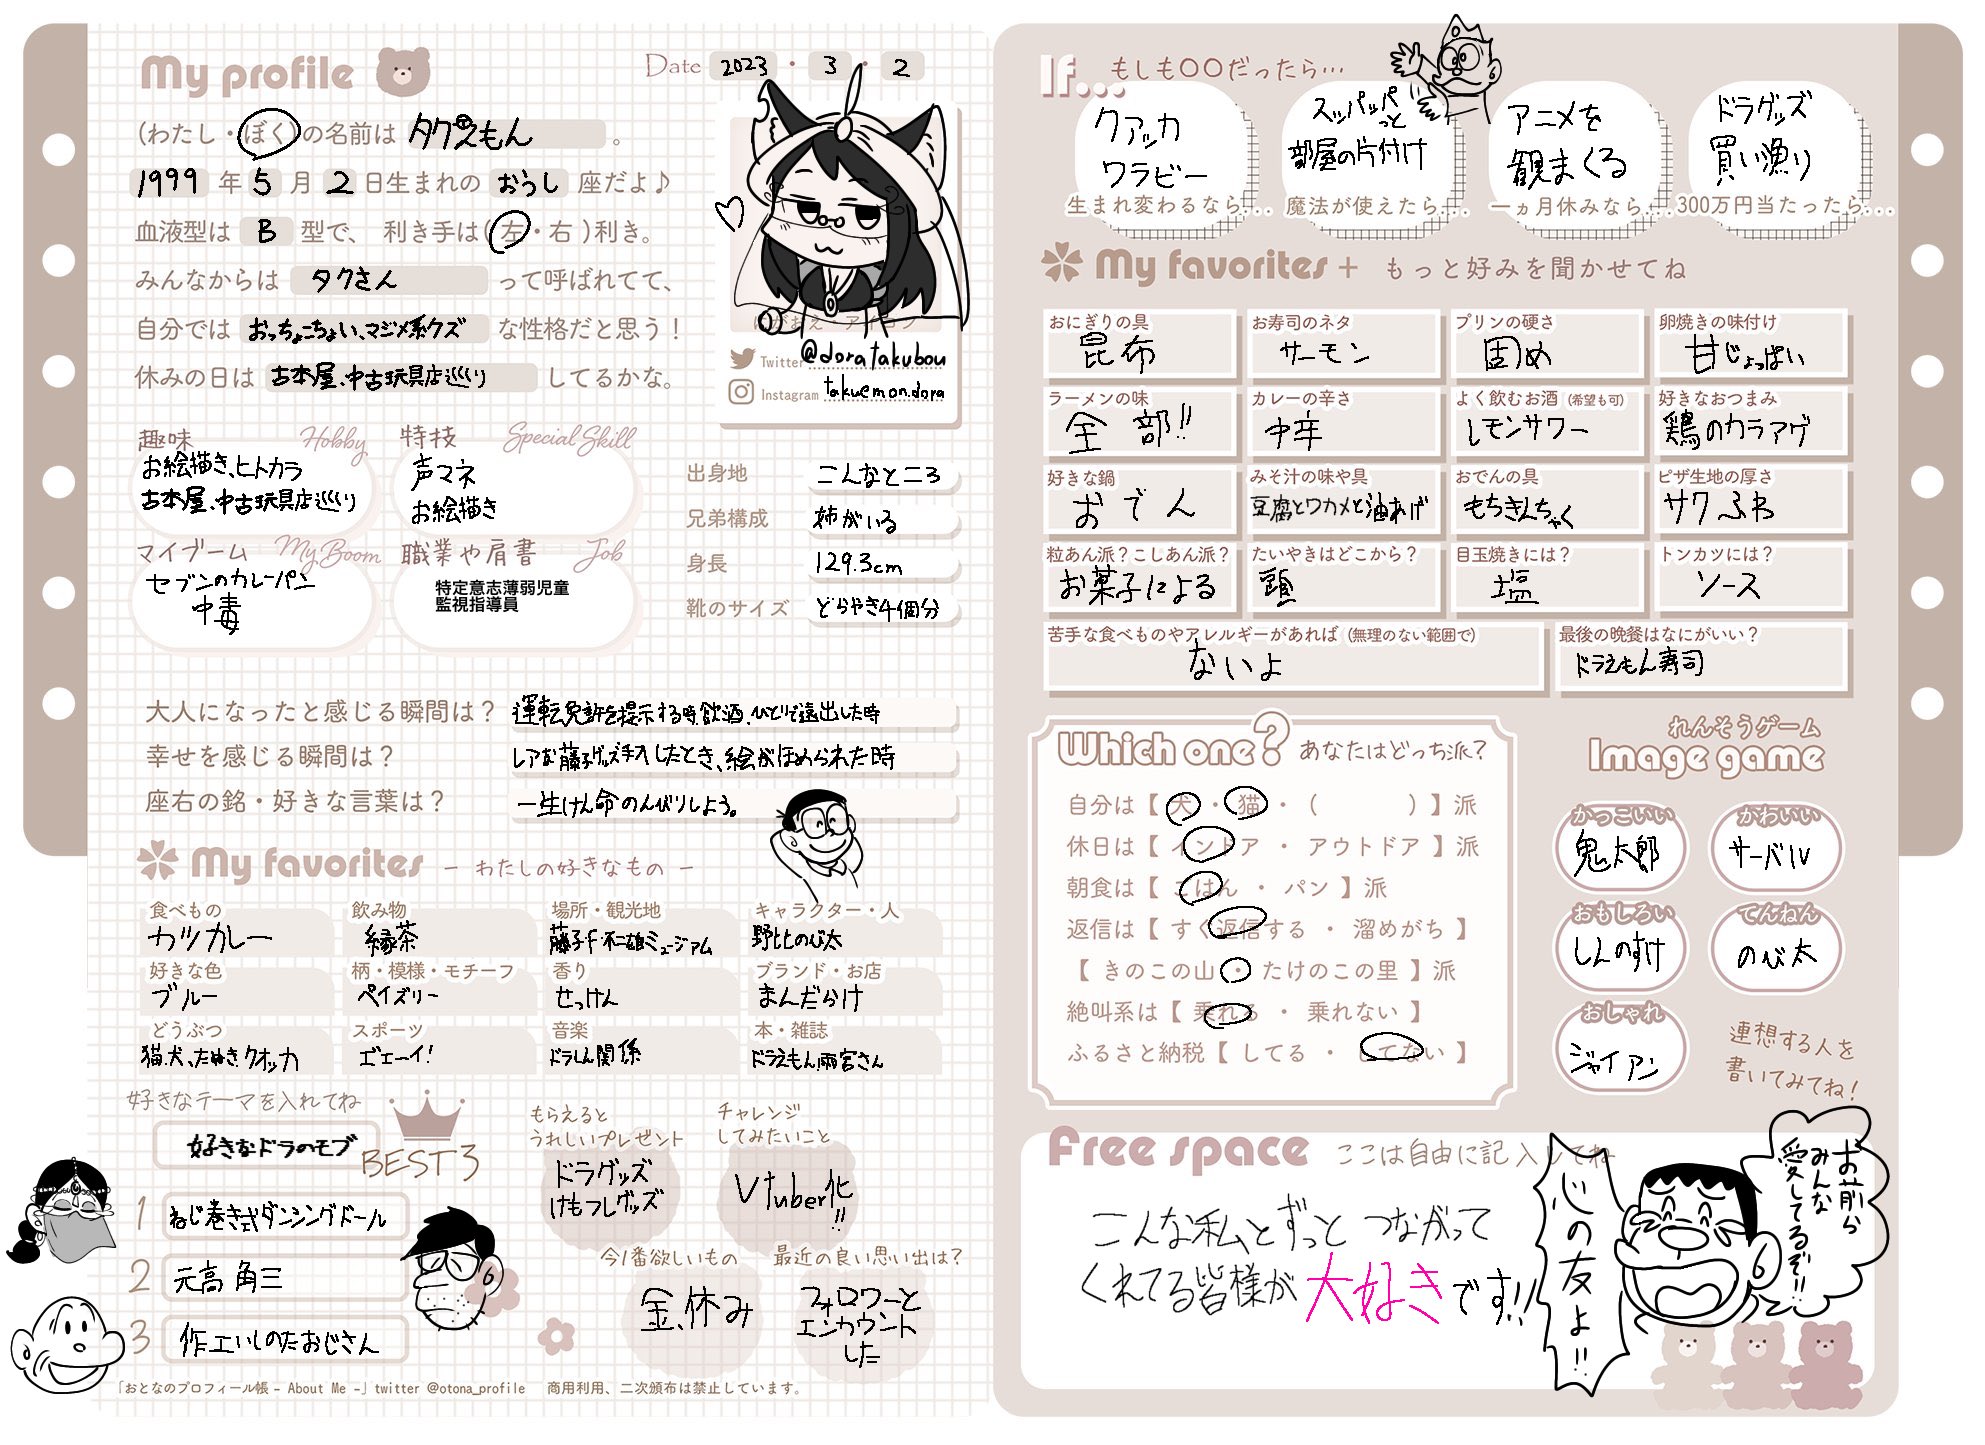 My profile
Date 2023 ・ 3 ・ 2
(わたし・ぼく)の名前は タクえもん 。
1999 年 5 月 2 日生まれの おうし 座だよ♪
血液型は B 型で、 利き手は( 左・右 )利き。
みんなからは タクさん って呼ばれてて、
自分では おっちょこちょい、マジメ系クズ な性格だと思う！
休みの日は 古本屋、中古玩具店巡り してるかな。
にがおえ・アイコン
Twitter @doratakubou
Instagram takuemon.dora
趣味 Hobby
お絵描き、ヒトカラ
古本屋、中古玩具店巡り
特技 Special Skill
声マネ
お絵描き
マイブーム My Boom
セブンのカレーパン
中毒
職業や肩書 Job
特定意志薄弱児童
監視指導員
出身地 こんなところ
兄弟構成 姉がいる
身長 129.3cm
靴のサイズ どらやき4個分
大人になったと感じる瞬間は？ 運転免許を提示する時、飲酒、ひとりで遠出した時
幸せを感じる瞬間は？ レアな藤子グッズ手入したとき、絵がほめられた時
座右の銘・好きな言葉は？ 一生けん命のんびりしよう。
My favorites － わたしの好きなもの －
食べもの
カツカレー
飲み物
緑茶
場所・観光地
藤子・F・不二雄ミュージアム
キャラクター・人
野比のび太
好きな色
ブルー
柄・模様・モチーフ
ペイズリー
香り
せっけん
ブランド・お店
まんだらけ
どうぶつ
猫、犬、たぬき、クオッカ
スポーツ
ゴエーイ!
音楽
ドラしん関係
本・雑誌
ドラえもん、雨宮さん
好きなテーマを入れてね
好きなドラのモブ
BEST3
1 ねじ巻き式ダンシングドール
2 元高 角三
3 作エいしのたおじさん
もらえると
うれしいプレゼント
ドラグッズ
けもフレグッズ
チャレンジ
してみたいこと
Vtuber化!!
今1番欲しいもの
金、休み
最近の良い思い出は？
フォロワーと
エンカウント
した
「おとなのプロフィール帳 - About Me -」twitter @otona_profile 商用利用、二次頒布は禁止しています。
If... もしも〇〇だったら…
クアッカ
ワラビー
生まれ変わるなら...
スッパッパ
っと
部屋の片付け
魔法が使えたら...
アニメを
観まくる
一ヵ月休みなら...
ドラグッズ
買い漁り
300万円当たったら...
My favorites + もっと好みを聞かせてね
おにぎりの具
昆布
お寿司のネタ
サーモン
プリンの硬さ
固め
卵焼きの味付け
甘じょっぱい
ラーメンの味
全部!!
カレーの辛さ
中辛
よく飲むお酒 (希望も可)
レモンサワー
好きなおつまみ
鶏のカラアゲ
好きな鍋
おでん
みそ汁の味や具
豆腐とワカメと油あげ
おでんの具
もちきんちゃく
ピザ生地の厚さ
サクふわ
粒あん派？こしあん派？
お菓子による
たいやきはどこから？
頭
目玉焼きには？
塩
トンカツには？
ソース
苦手な食べものやアレルギーがあれば (無理のない範囲で)
ないよ
最後の晩餐はなにがいい？
ドラえもん寿司
Which one? あなたはどっち派？
自分は【 犬 ・ 猫 ・ ( ) 】派
休日は【 インドア ・ アウトドア 】派
朝食は【 ごはん ・ パン 】派
返信は【 すぐ返信する ・ 溜めがち 】
【 きのこの山 ・ たけのこの里 】派
絶叫系は【 乗れる ・ 乗れない 】
ふるさと納税【 してる ・ してない 】
れんそうゲーム
Image game
かっこいい
鬼太郎
かわいい
サーバル
おもしろい
しんのすけ
てんねん
のび太
おしゃれ
ジャイアン
連想する人を
書いてみてね！
Free space ここは自由に記入してね
こんな私とずっとつながって
くれてる皆様が大好きです!!
心の友よ!!
お前ら
みんな
愛してるぞ!!